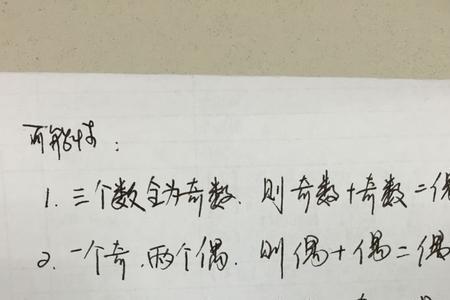 可能性:
1. 三个数全为奇数. 则奇数+奇数=偶
2. 一个奇.两个偶. 则偶+偶=偶